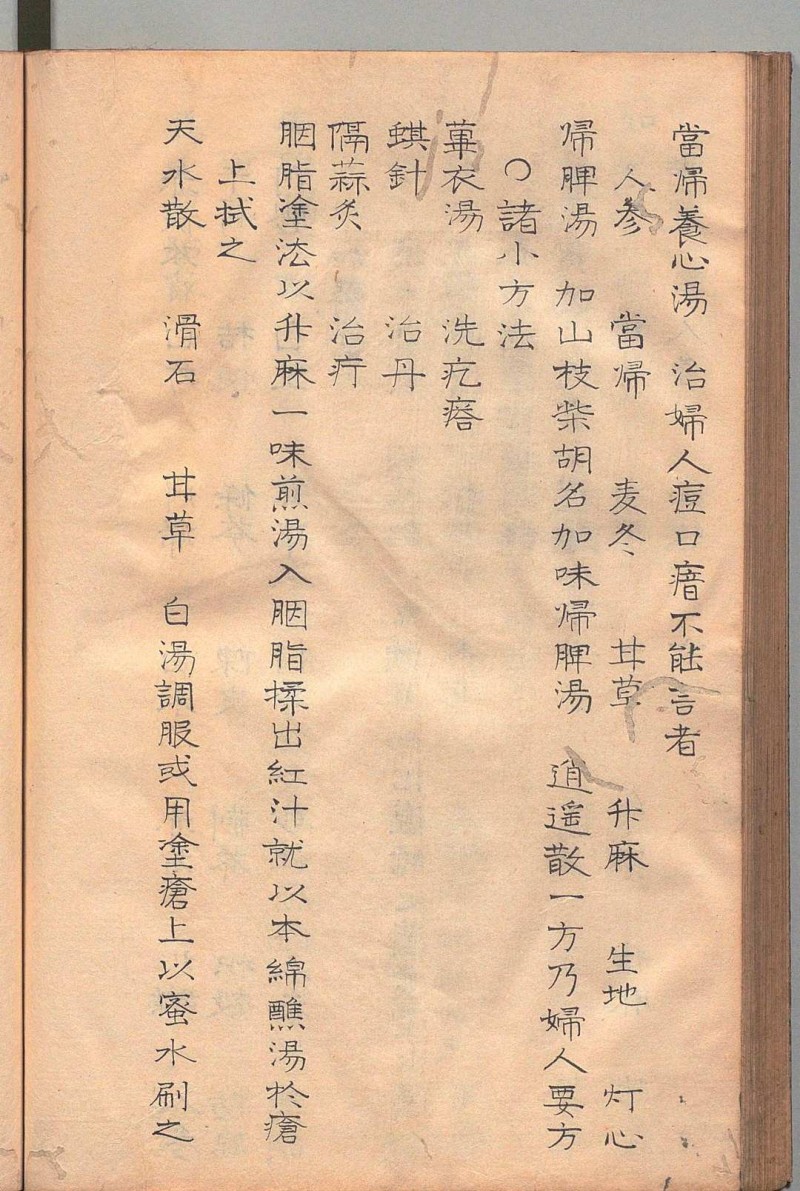 當帰養心湯 治婦人痘口瘖不能言者
人参 當帰 麦冬 甘草 升麻 生地 灯心
帰脾湯 加山枝柴胡名加味帰脾湯 逍遥散一方乃婦人要方
○諸小方法
萆衣湯 洗疙瘩
蜞針 治丹
隔蒜灸 治疔
胭脂塗法以升麻一味煎湯入胭脂揉出紅汁就以本綿蘸湯於瘡
上拭之
天水散 滑石 甘草 白湯調服或用塗瘡上以蜜水刷之